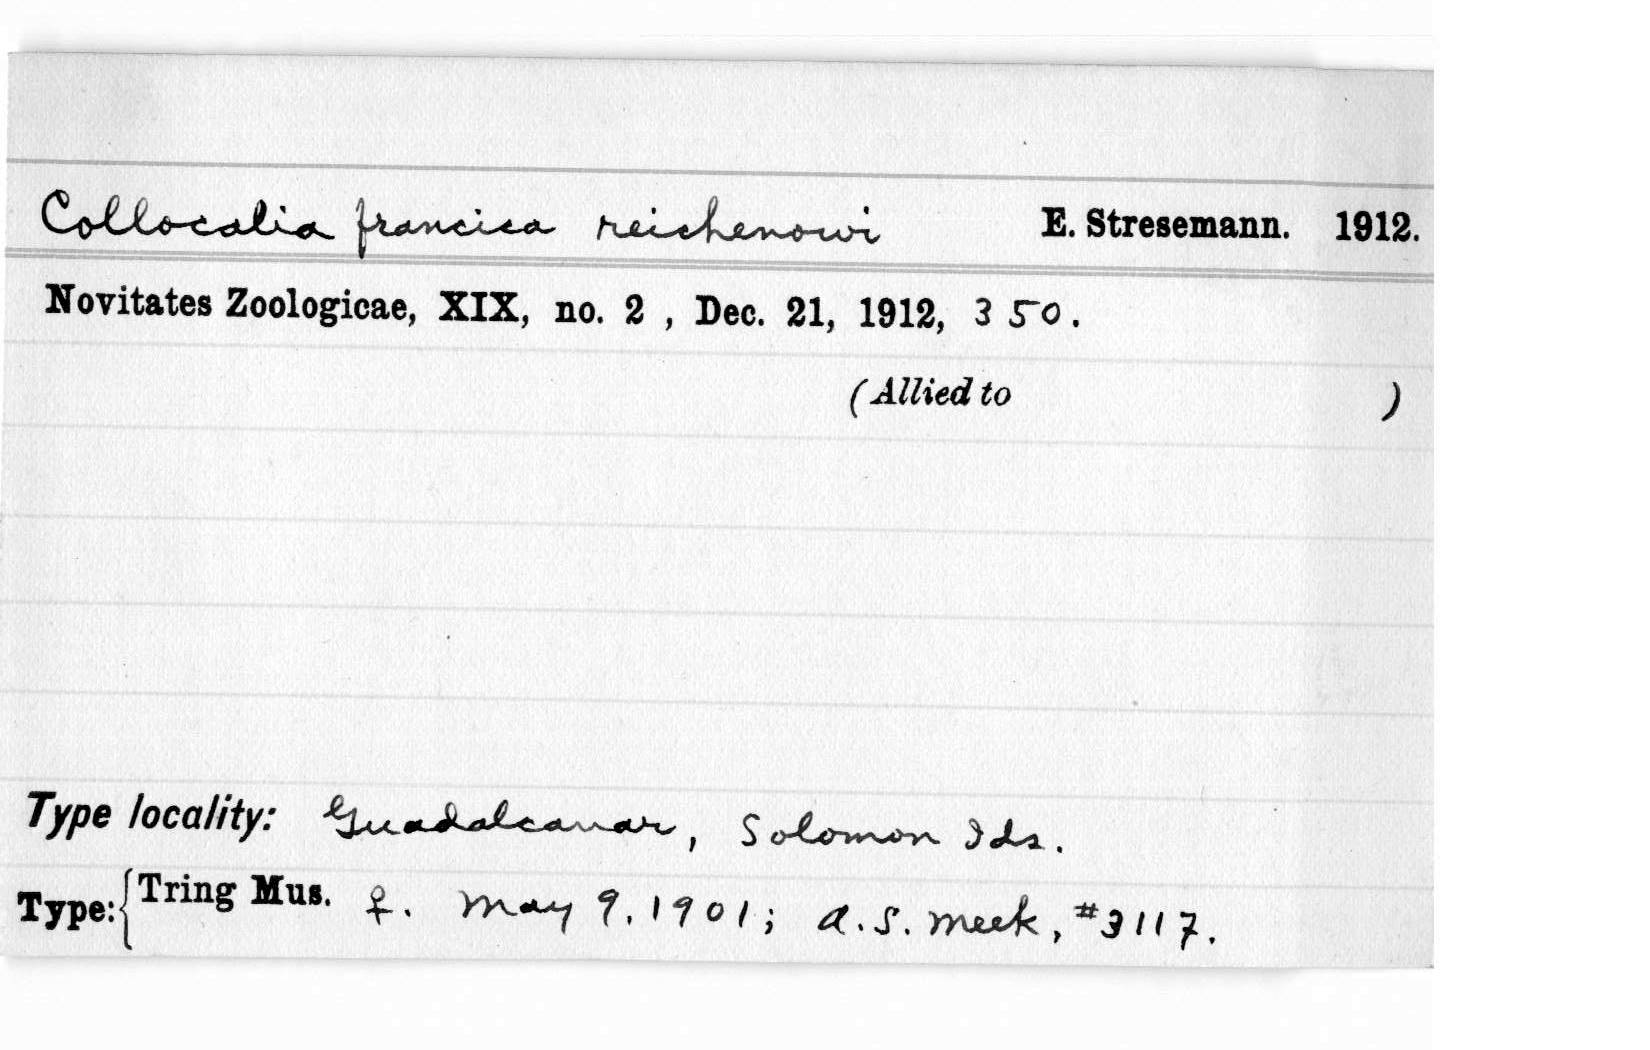 Collocalia francica reichenowi E. Stresemann. 1912.
Novitates Zoologicae, XIX, no. 2 , Dec. 21, 1912, 350.
(Allied to )
Type locality: Guadalcanar, Solomon Ids.
Type: { Tring Mus. ♀. May 9, 1901; A.S. Meek, #3117.